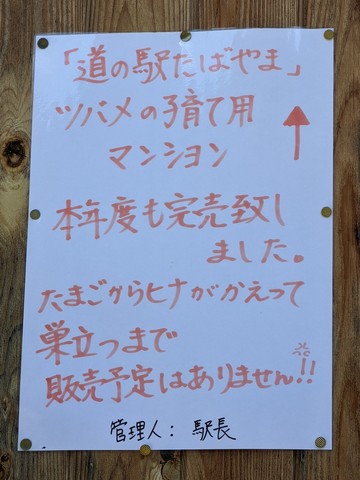 「道の駅たばやま」
ツバメの子育て用
マンション
本年度も完売致し
ました。
たまごからヒナがかえって
巣立つまで
販売予定はありません!!
管理人: 駅長